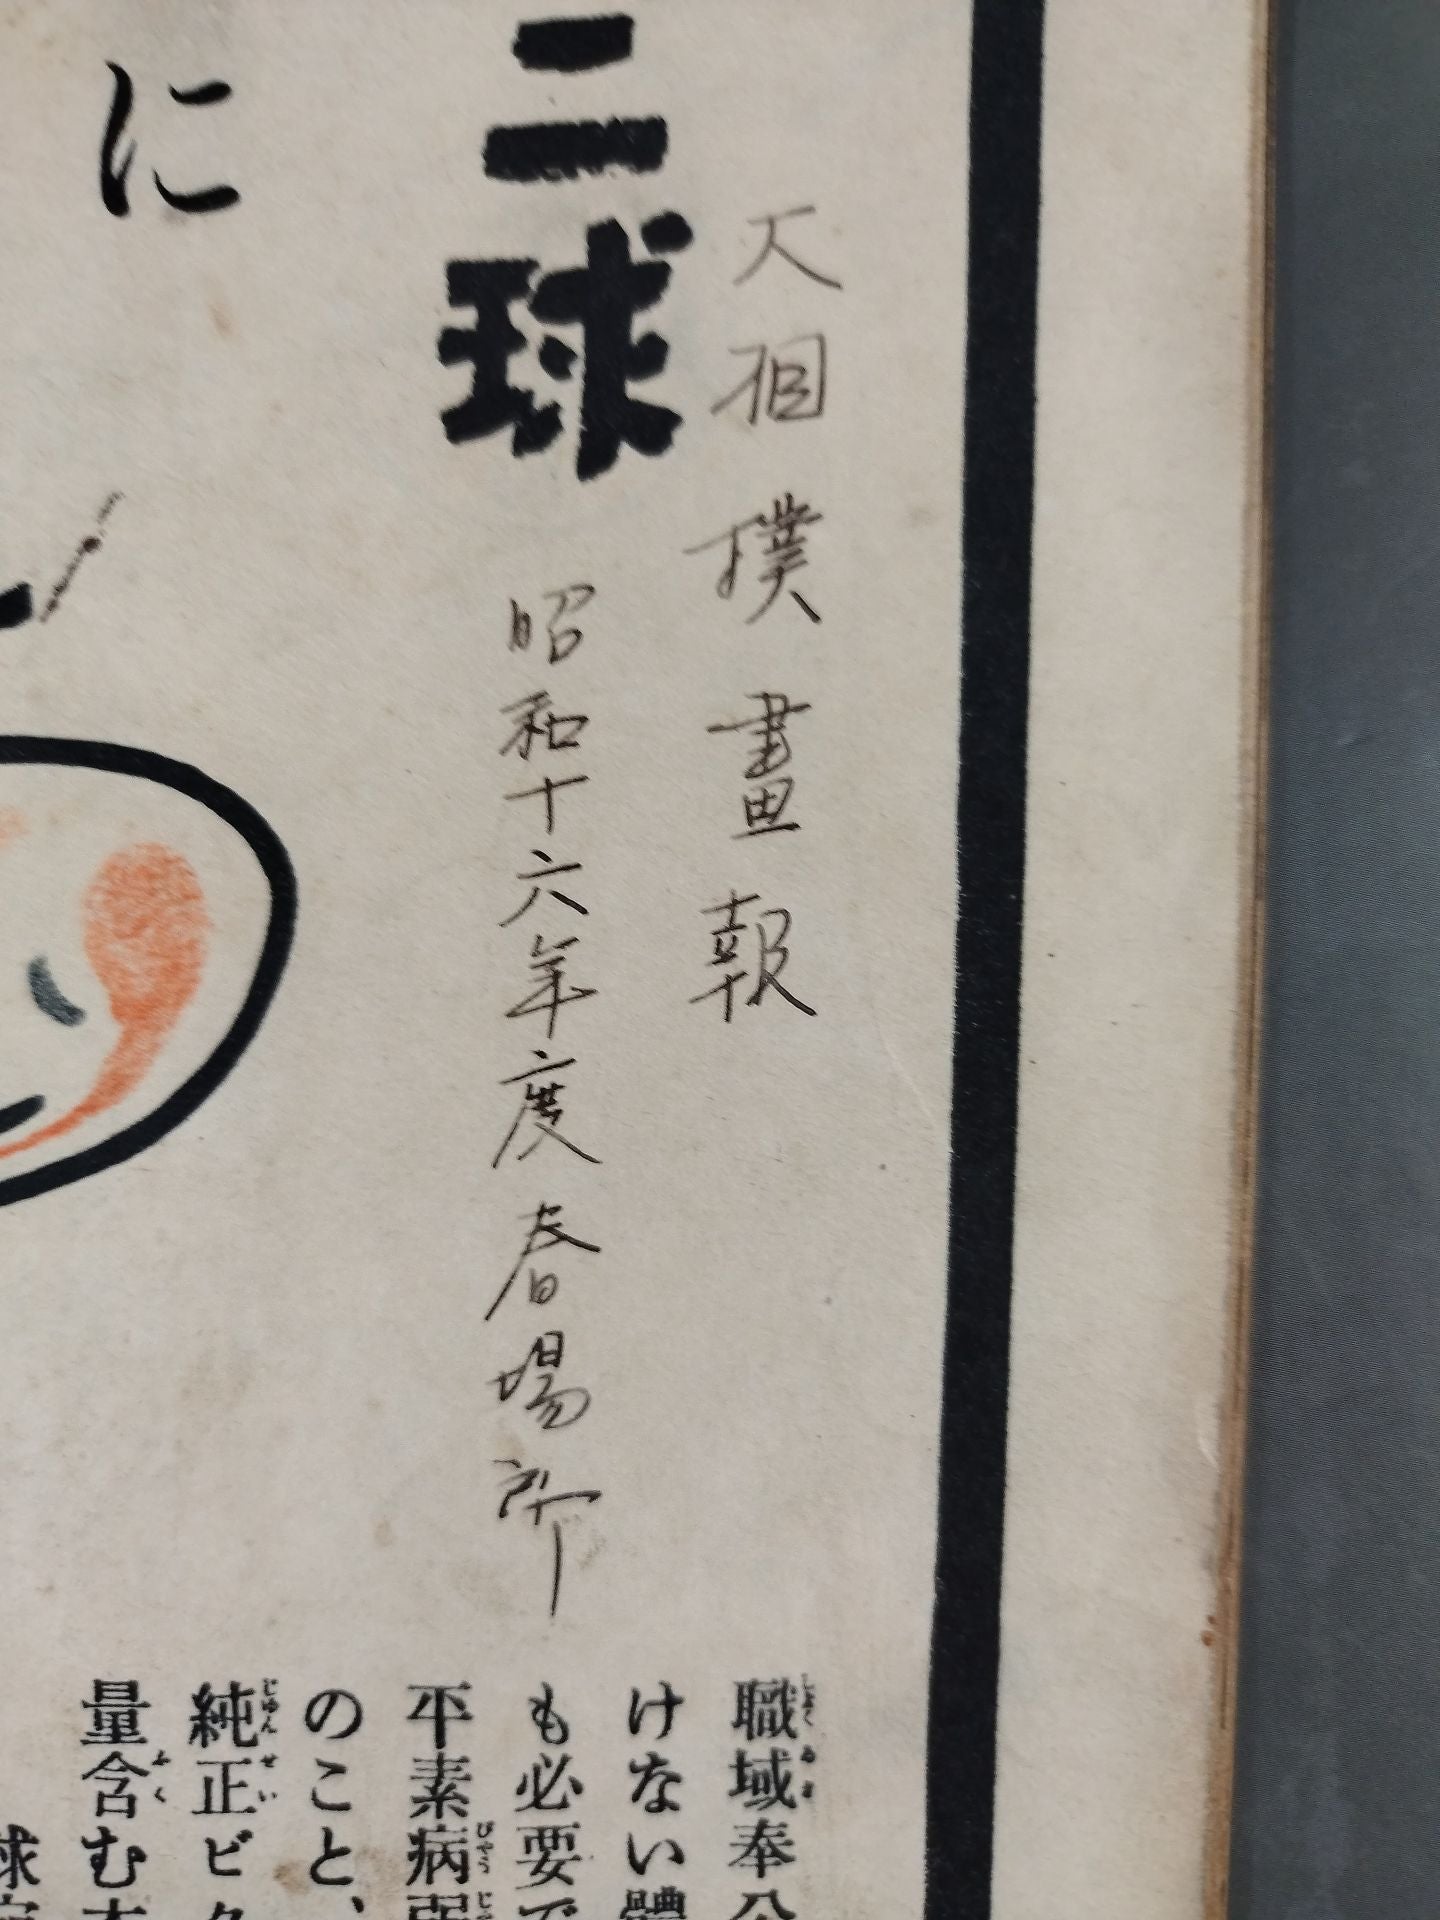 大相撲畫報
二球
昭和十六年度春場所
に
職域奉公
けない體
も必要で
平素病弱
のこと、
純正ビタ
量含む
球